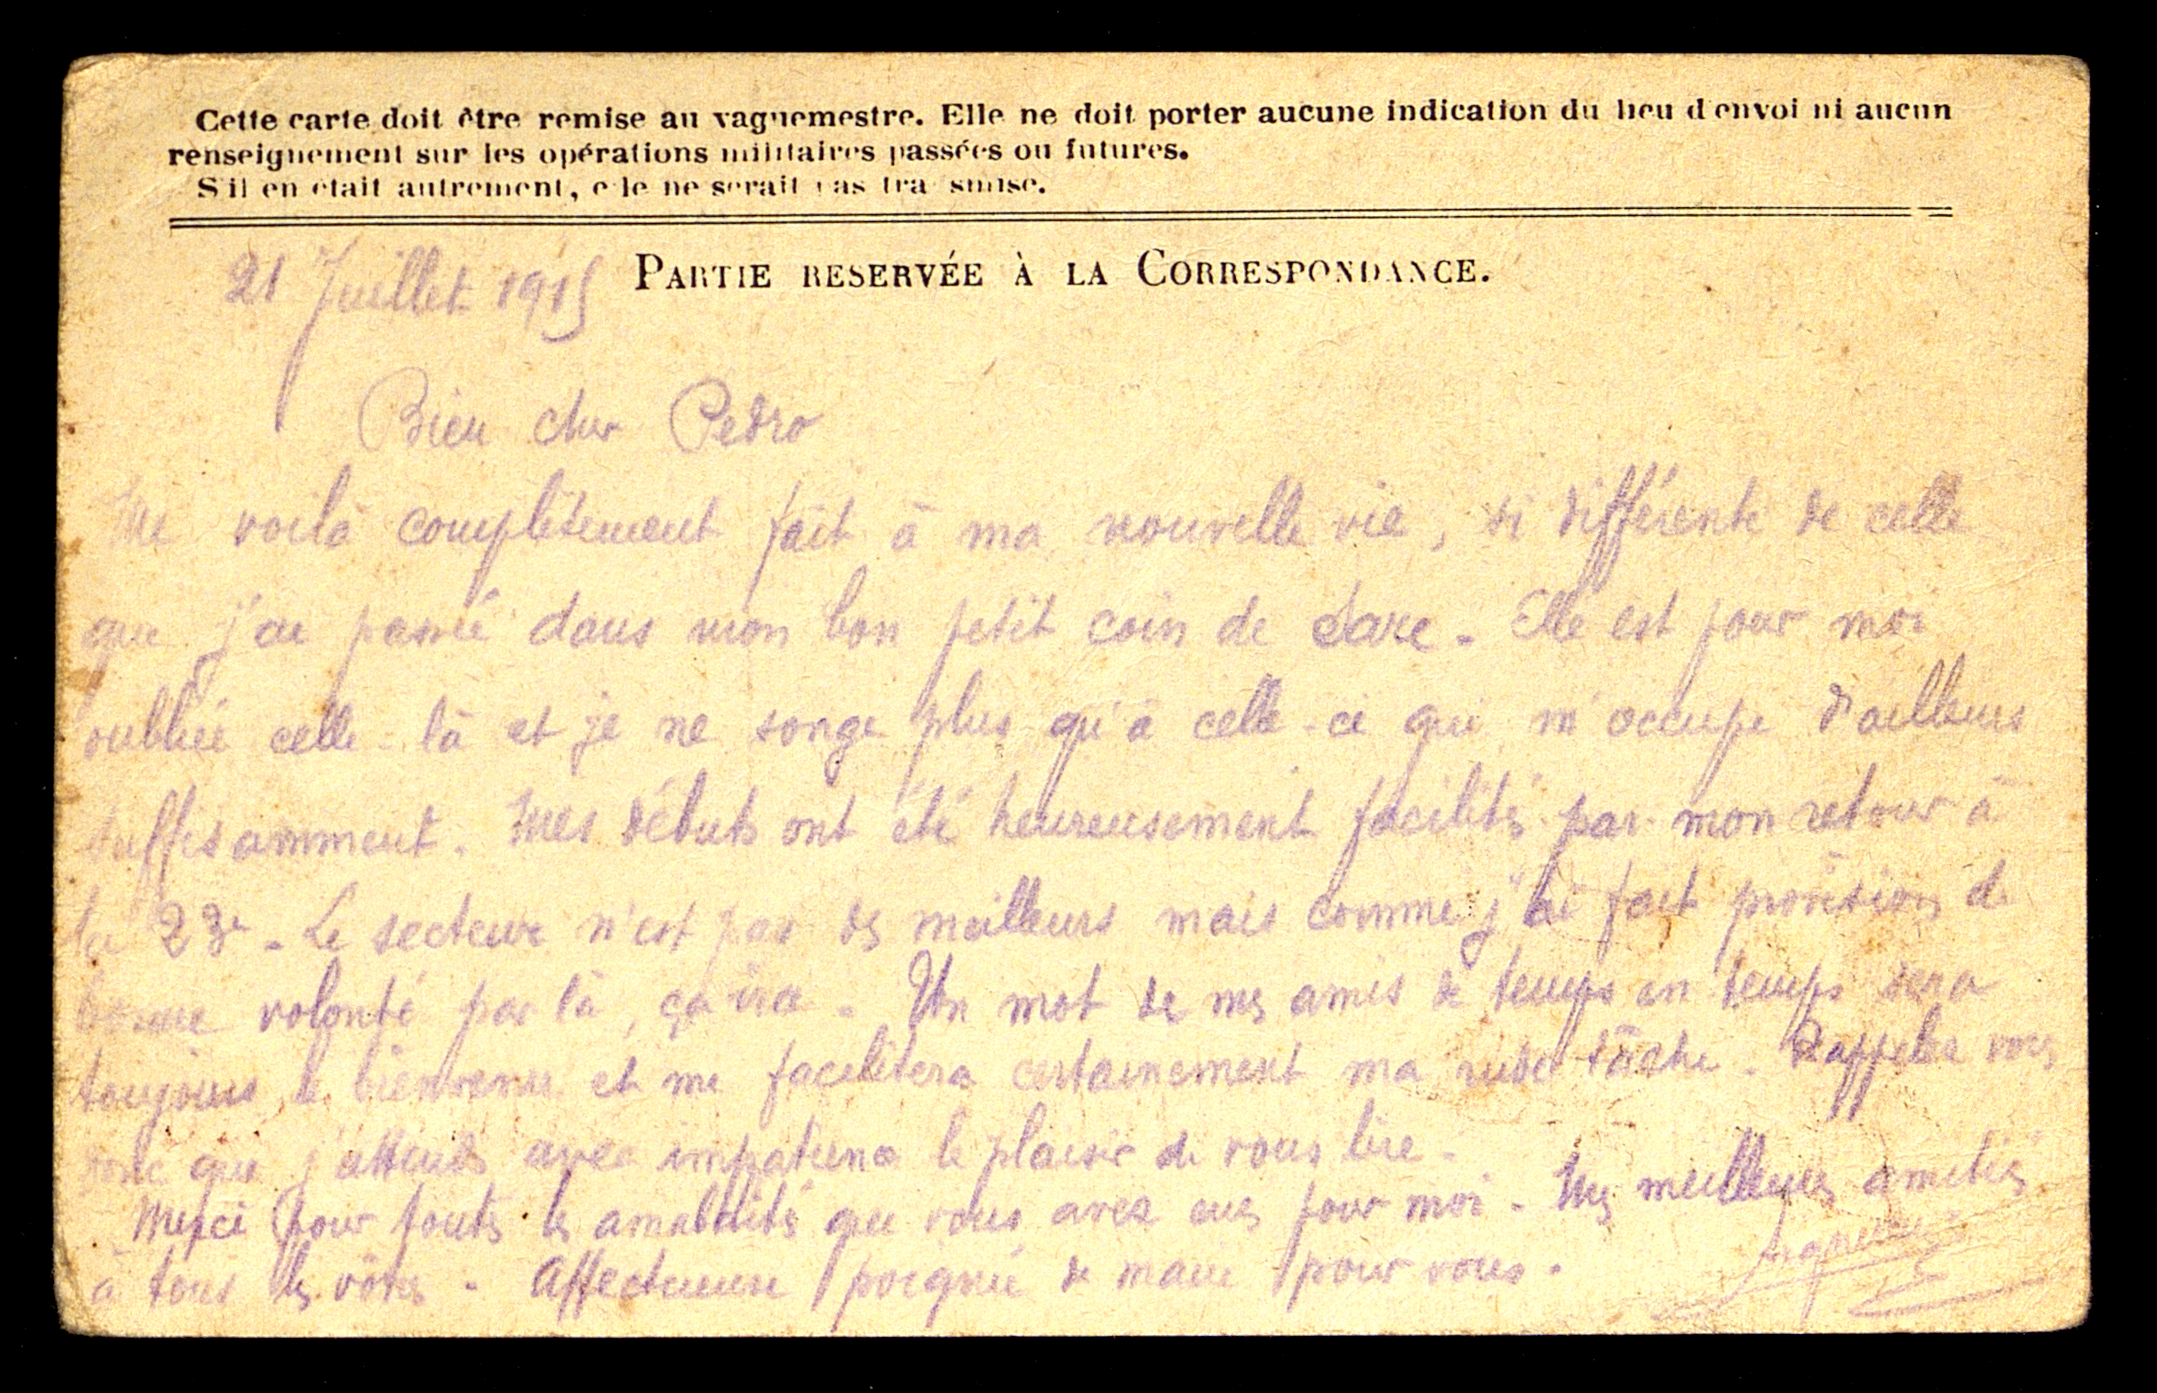 Cette carte doit être remise au vaguemestre. Elle ne doit porter aucune indication du lieu d'envoi ni aucun
renseignement sur les opérations militaires passées ou futures.
S'il en était autrement, elle ne serait pas transmise.
21 Juillet 1915 PARTIE RESERVÉE À LA CORRESPONDANCE.
Bien cher Pedro
Me voilà complètement fait à ma nouvelle vie, si différente de celle
que j'ai passée dans mon bon petit coin de Sare - Elle est pour moi
oubliée celle-là et je ne songe plus qu'à celle-ci qui m'occupe d'ailleurs
suffisamment. Mes débuts ont été heureusement facilités par mon retour à
la 23e - Le secteur n'est pas des meilleurs mais comme j'ai fait provision de
bonne volonté par là, ça ira - Un mot de mes amis de temps en temps sera
toujours le bienvenu et me facilitera certainement ma rude tâche - Rappelez vous
donc que j'attends avec impatience le plaisir de vous lire -
Merci pour toutes les amabilités que vous avez eues pour moi - Mes meilleures amitiés
à tous les vôtres - Affectueuse poignée de main pour vous.